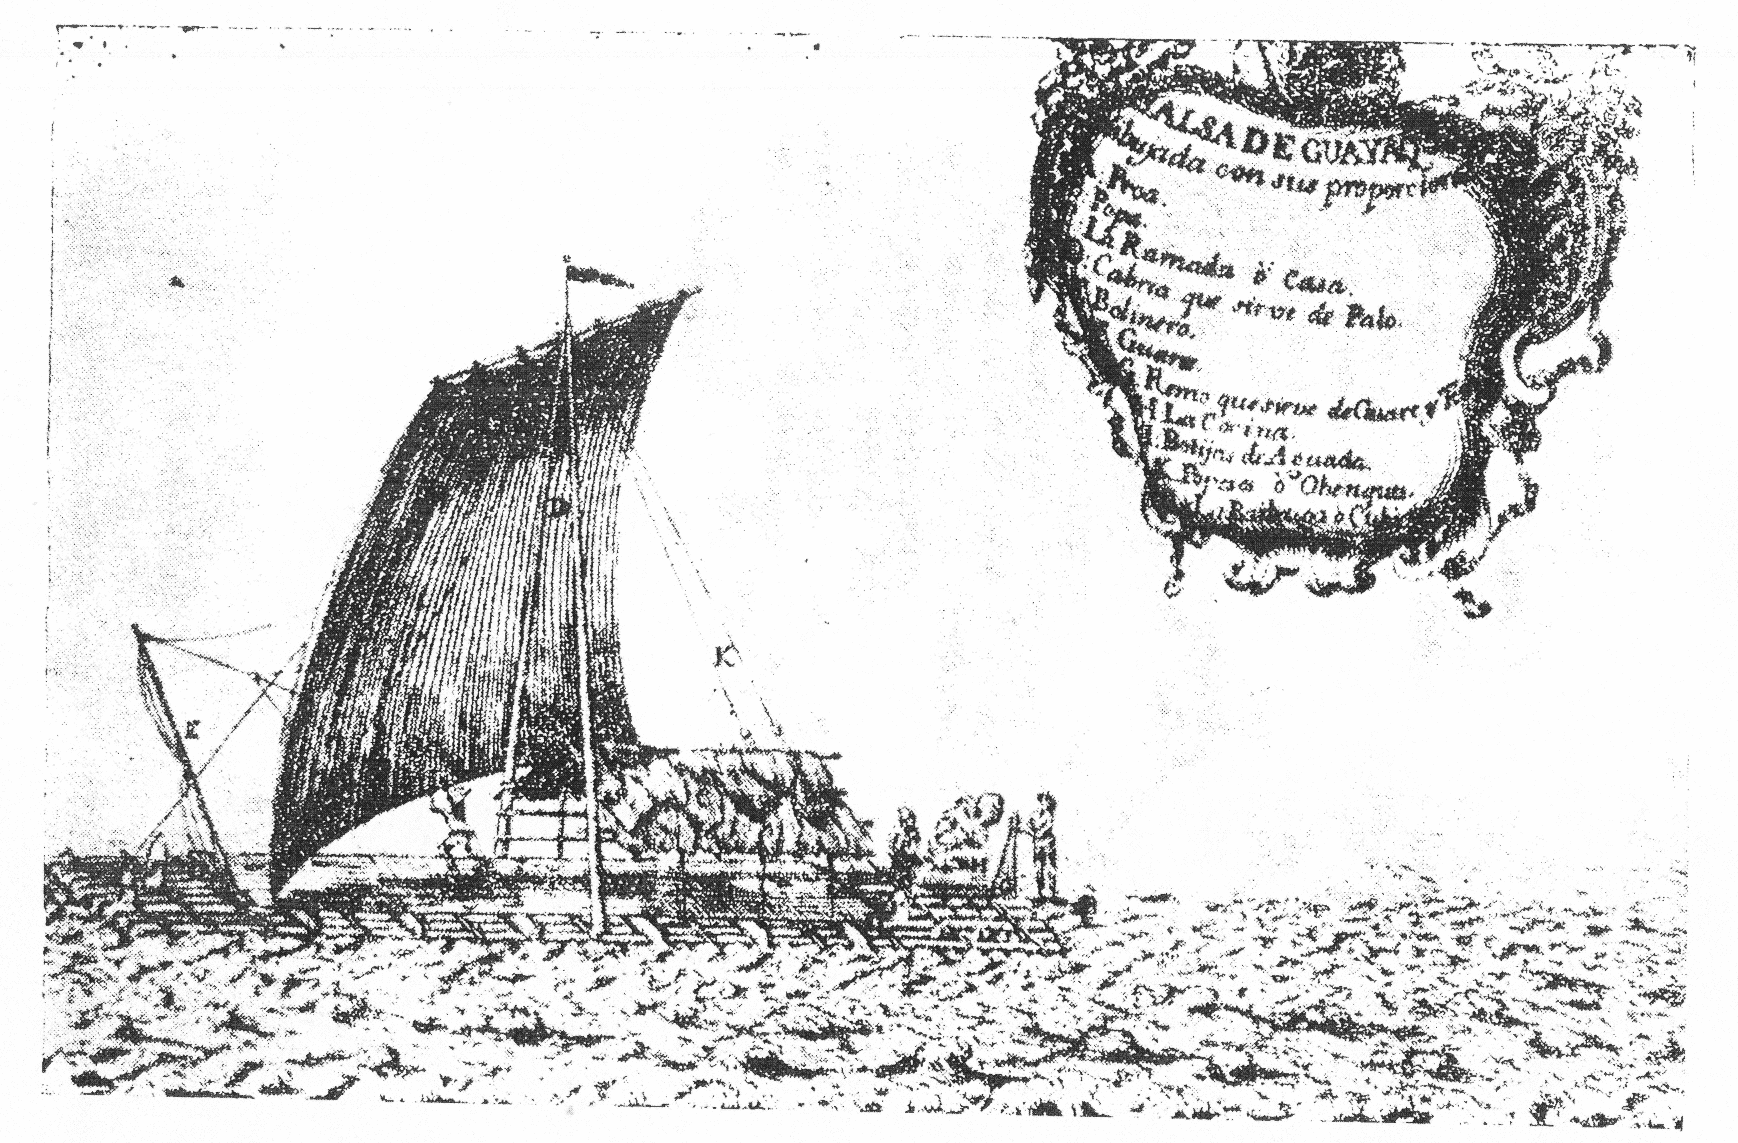 ALSA DE GUAYAQ
ibujada con sus proporcion
A. Proa.
Popa.
La Ramada ò Casa.
Cabria que sirve de Palo.
Bolinero.
Guares
G. Remo que sirve de Guare y
H. La Cocina.
I. Botijas de Aguada.
K. Popeses ò Obenques.
D
K
E
H